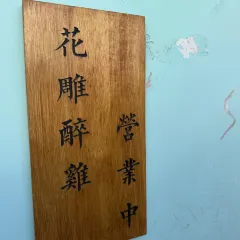 花雕醉雞
營業中